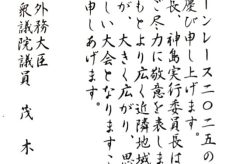 ーンレース二〇二五の
慶び申し上げます。
長、神島実行委員長は
ご尽力に敬意を表しま
もとより広く近隣地域
が、大きく広がり、思
しい大会となりますこ
申しあげます。
外務大臣
衆議院議員 茂木